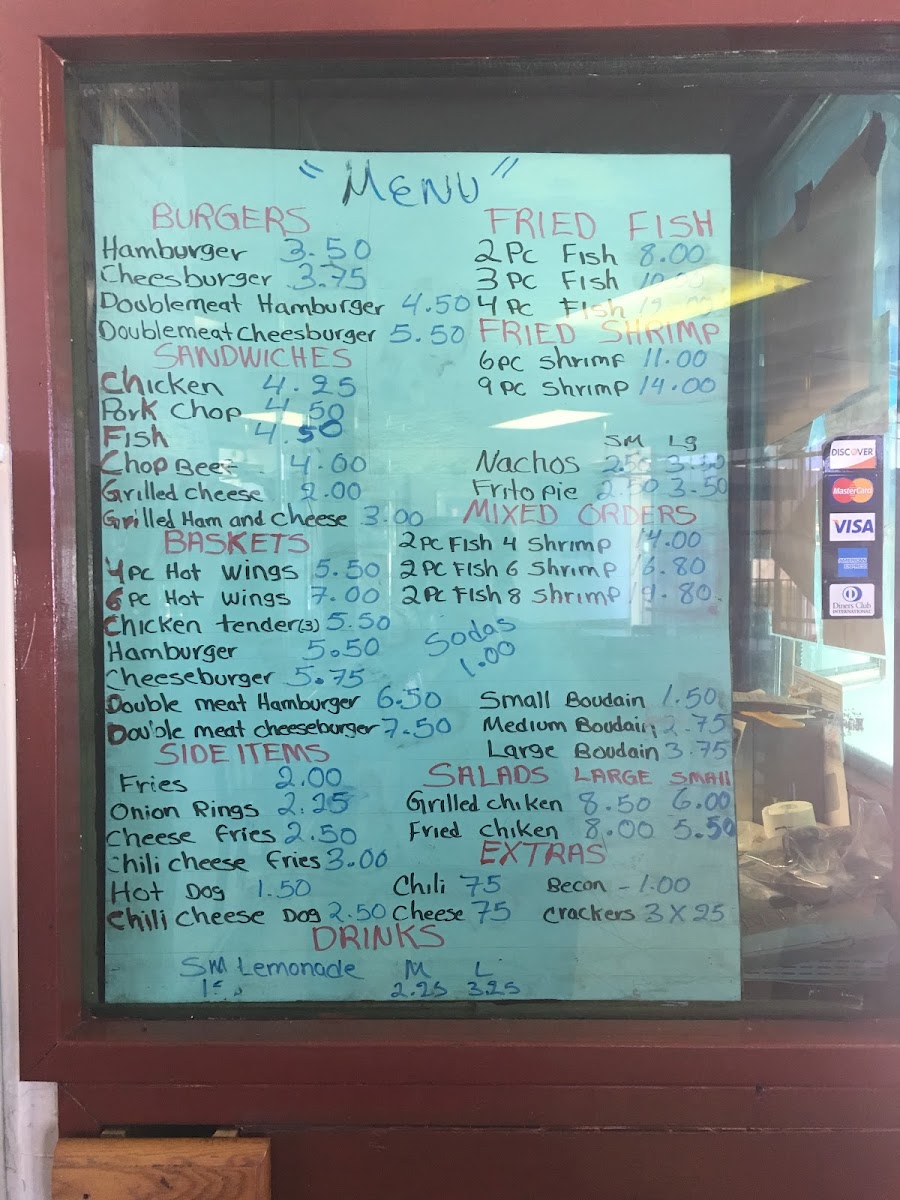 "MENU"
BURGERS
Hamburger 3.50
Cheesburger 3.75
Doublemeat Hamburger 4.50
Doublemeat Cheesburger 5.50
SANDWICHES
Chicken 4.25
Pork Chop 4.50
Fish 4.50
Chop Beef 4.00
Grilled Cheese 2.00
Grilled Ham and Cheese 3.00
BASKETS
4 PC Hot Wings 5.50
6 PC Hot Wings 7.00
Chicken tender(3) 5.50
Hamburger 5.50
Cheeseburger 5.75
Double meat Hamburger 6.50
Double meat cheeseburger 7.50
SIDE ITEMS
Fries 2.00
Onion Rings 2.25
Cheese fries 2.50
Chili cheese fries 3.00
Hot Dog 1.50
Chili Cheese Dog 2.50
FRIED FISH
2 Pc Fish 8.00
3 Pc Fish
4 Pc Fish
FRIED SHRIMP
6 pc Shrimp 11.00
9 pc Shrimp 14.00
SM Lg
Nachos 2.50 3.50
Frito pie 2.50 3.50
MIXED ORDERS
2 Pc Fish 4 Shrimp 14.00
2 Pc Fish 6 Shrimp 16.80
2 Pc Fish 8 Shrimp 19.80
Sodas
1.00
Small Boudain 1.50
Medium Boudain 2.75
Large Boudain 3.75
SALADS LARGE SMALL
Grilled chiken 8.50 6.00
Fried chiken 8.00 5.50
EXTRAS
Chili 75 Becon - 1.00
Cheese 75 Crackers 3 X 25
DRINKS
SM Lemonade M L
2.25 3.25
DISCOVER
MasterCard
VISA
AMERICAN EXPRESS
Diners Club
INTERNATIONAL